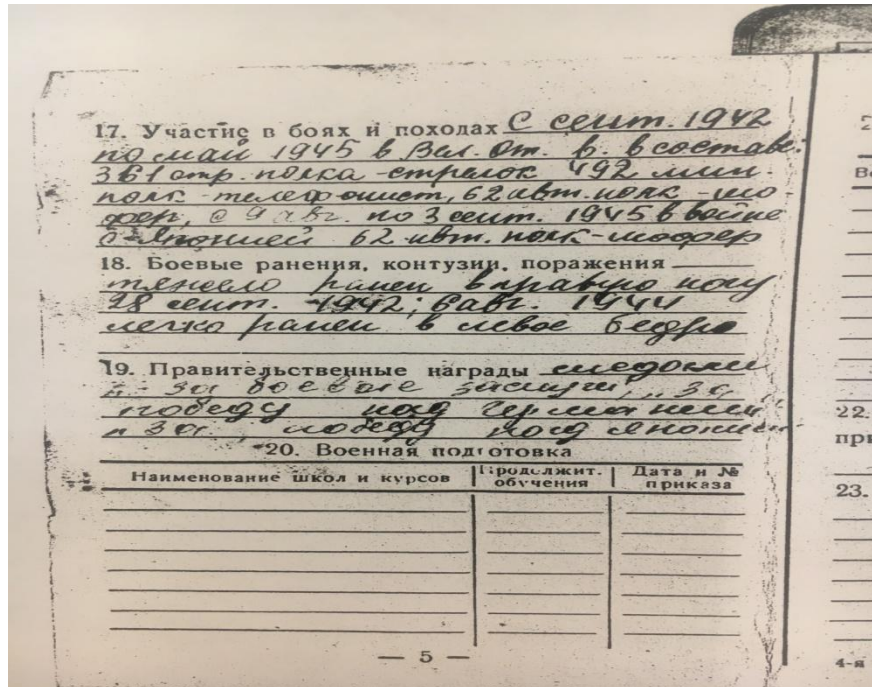 17. Участие в боях и походах С сент. 1942
по май 1945 в Вел. От. в. в составе:
361 стр. полка - стрелок 492 мин.
полк - телефонист, 62 авт. полк - шо
фер, с 9 авг. по 3 сент. 1945 в войне
с Японией 62 авт. полк - шофер
18. Боевые ранения, контузии, поражения
тяжело ранен в правую ногу
28 сент. 1942; 6 авг. 1944
легко ранен в левое бедро
19. Правительственные награды медали
"За боевые заслуги", "За
победу над Германией
"За победу над Японии
20. Военная подготовка
Наименование школ и курсов Продолжит. обучения Дата и № приказа
— 5 —
2
В
22.
при
23.
4-я